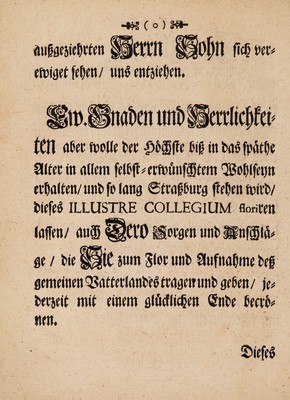 ( o )
außgeziehrten Herrn Sohn sich ver-
ewiget sehen/ uns entziehen.
Ew. Gnaden und Herrlichkei-
ten aber wolle der Höchste biß in das späthe
Alter in allem selbst-erwünschtem Wohlseyn
erhalten/ und so lang Straßburg stehen wird/
dieses ILLUSTRE COLLEGIUM floriren
lassen/ auch Dero Sorgen und Anschlä-
ge/ die Sie zum Flor und Aufnahme deß
gemeinen Vatterlandes tragen und geben/ je-
derzeit mit einem glücklichen Ende becrö-
nen.
Dieses